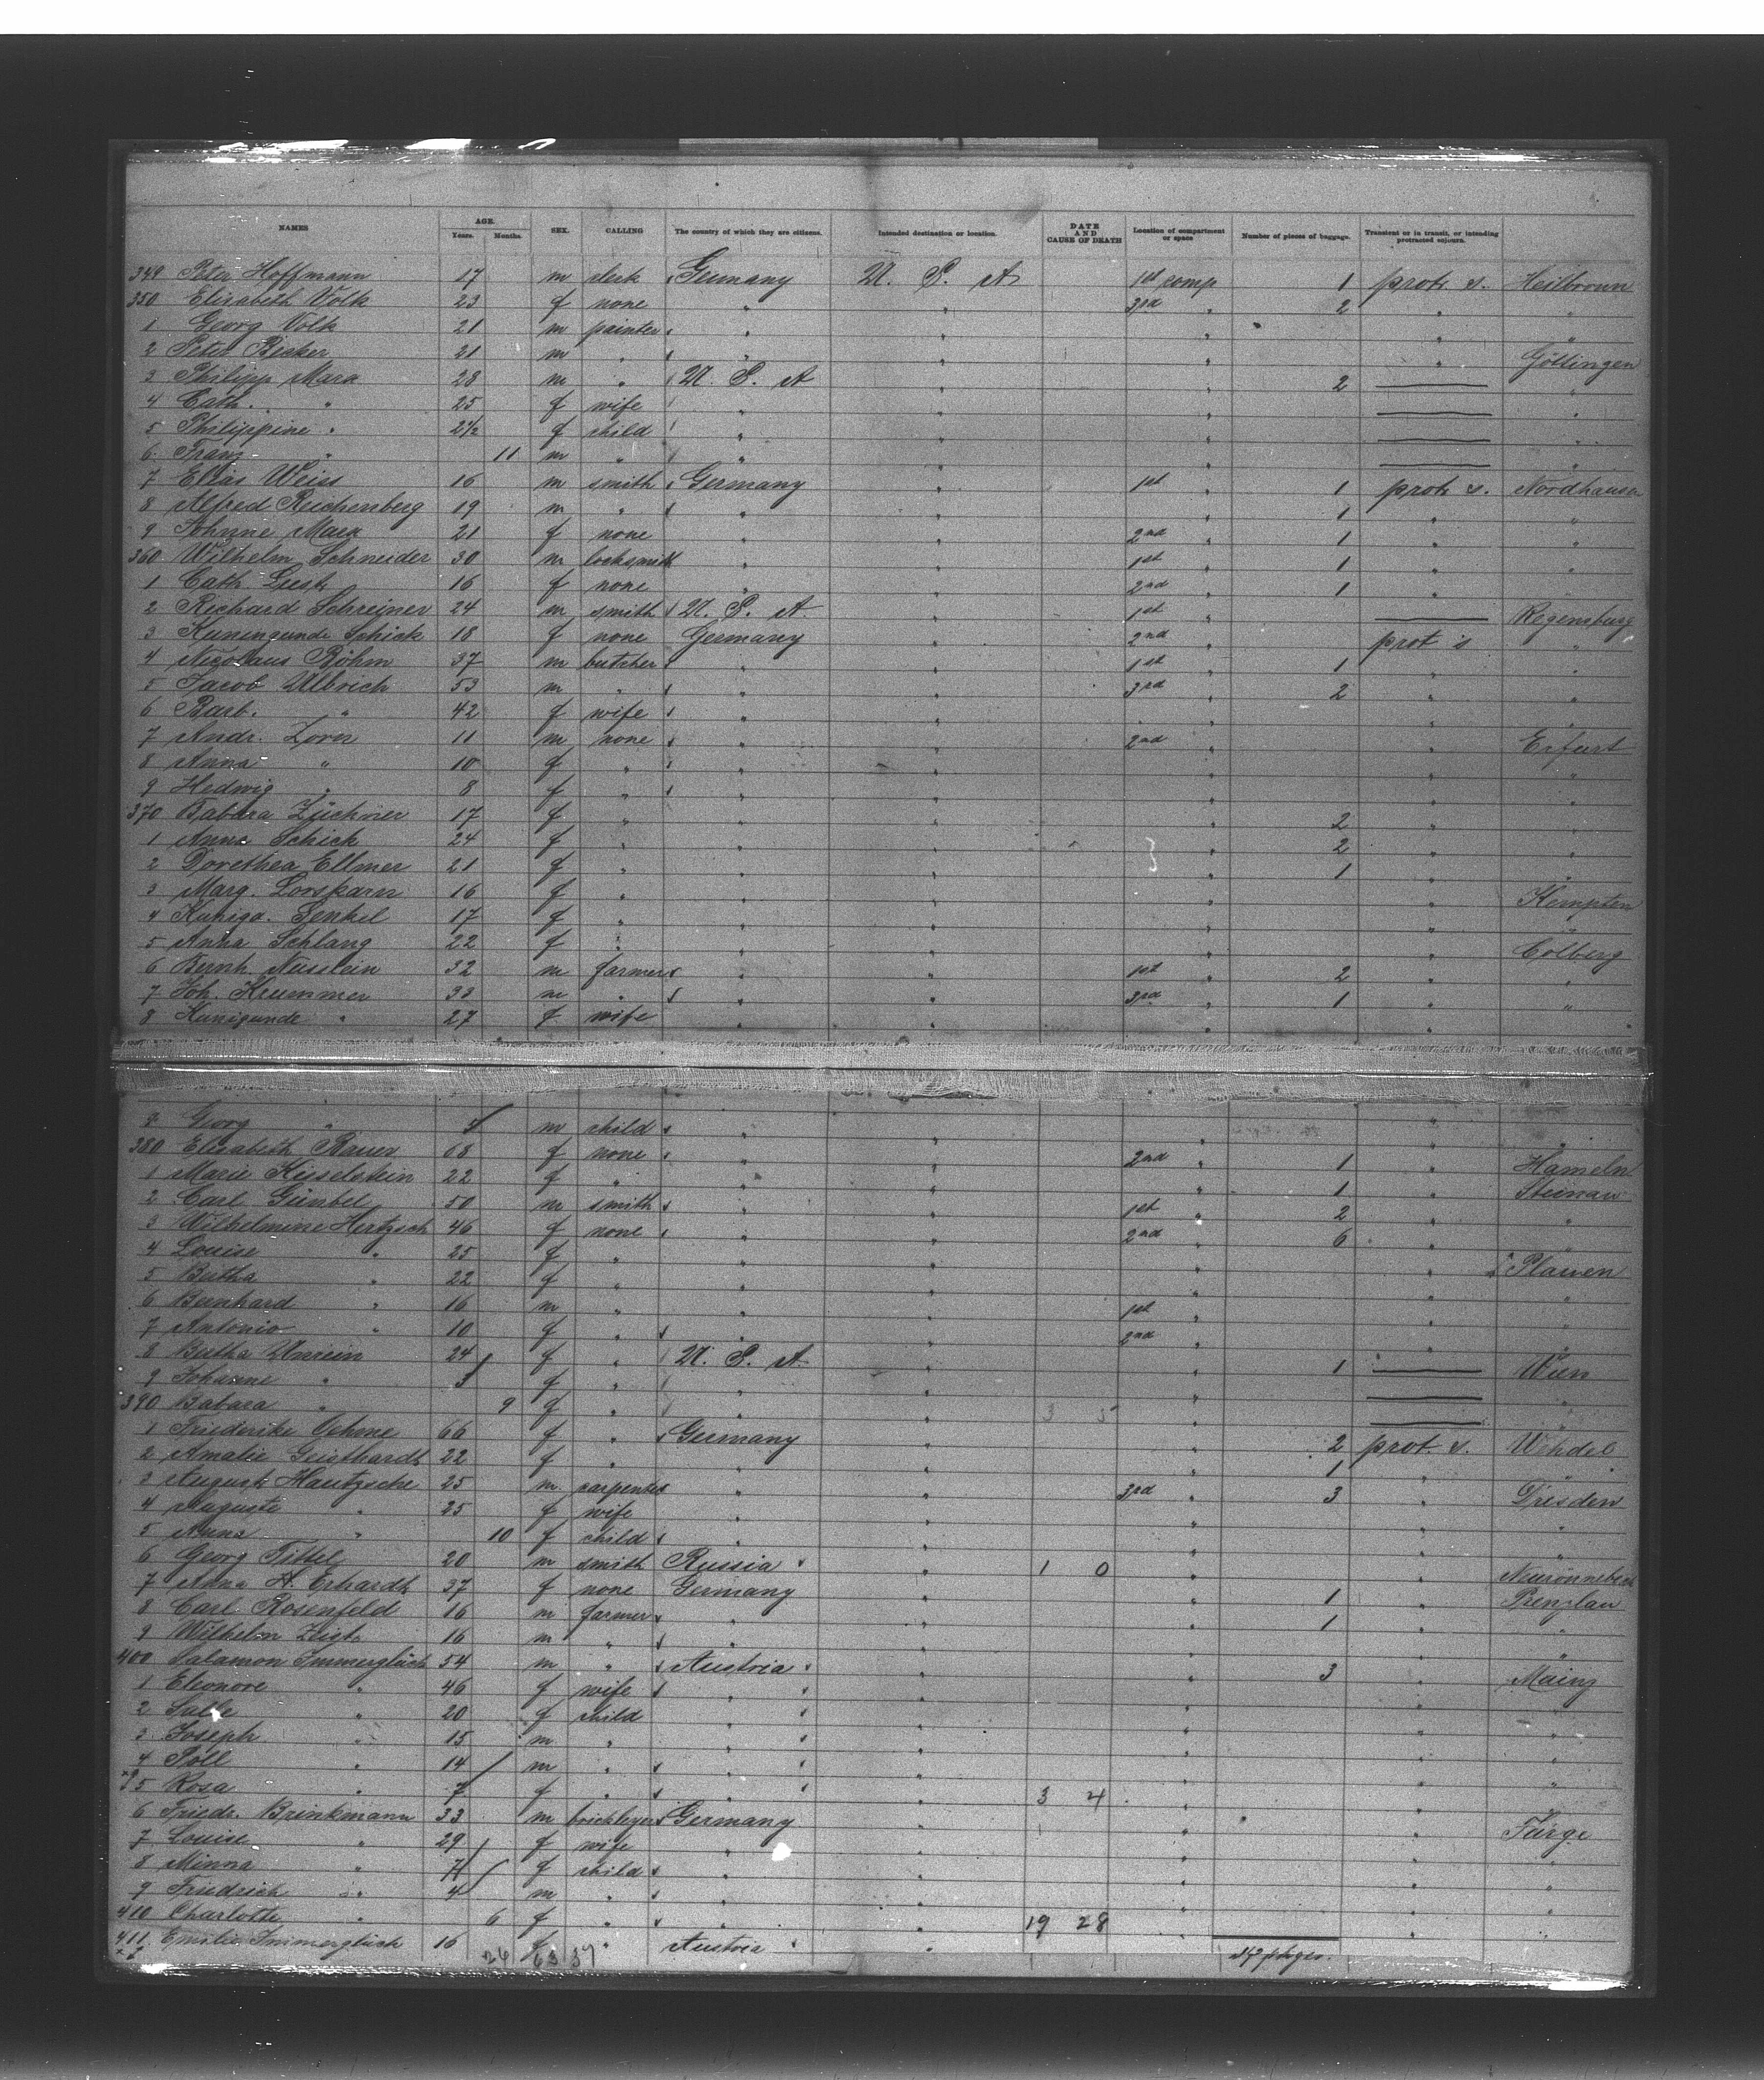 NAMES AGE. Years. Months. SEX. CALLING The country of which they are citizens. Intended destination or location. DATE AND CAUSE OF DEATH Location of compartment or space Number of pieces of baggage. Transient or in transit, or intending protracted sojourn.
349 Peter Hoffmann 17 m clerk Germany U. S. A 1st comp 1 prot. s. Heilbronn
350 Elisabeth Volk 23 f none " " 3rd " 2 " "
1 Georg Volk 21 m painter " " " " "
2 Peter Becker 21 m " " " " " Göttingen
3 Philipp Marx 28 m " U. S. A " " 2 — "
4 Cath. " 25 f wife " " " — "
5 Philippine " 2½ f child " " " — "
6 Franz " 11 m " " " " — "
7 Elias Weiss 16 m smith Germany " 1st " 1 prot. s. Nordhausen
8 Alfred Reichenberg 19 m " " " " 1 " "
9 Johnne Marx 21 f none " " 2nd " 1 " "
360 Wilhelm Schneider 30 m locksmith " " 1st " 1 " "
1 Cath. 16 f none " " 2nd " 1 " "
2 Richard Schreiner 24 m smith U. S. A. " 1st " — Regensburg
3 Kuningunde Schick 18 f none Germany " 2nd " prot s "
4 Nicolaus Böhm 37 m butcher " " 1st " 1 " "
5 Jacob Ulbrich 53 m " " " 3rd " 2 " "
6 Barb. " 42 f wife " " " " "
7 Andr. Zorn 11 m none " " 2nd " " Erfurt
8 Anna " 10 f " " " " " "
9 Hedwig " 8 f " " " " " "
370 Babara Züchner 17 f " " " " 2 " "
1 Anna Schick 24 f " " " " 2 " "
2 Dorethea Ellmer 21 f " " " " 1 " "
3 Marg. 16 f " " " " " Kempten
4 Kuniga. Senkel 17 f " " " " " "
5 Anna Schlang 22 f " " " " " Colberg
6 Bernh. Nüsslein 32 m farmer " " 1st " 2 " "
7 Joh. Krummer 33 m " " " 3rd " 1 " "
8 Kunigunde " 27 f wife " " " " "
9 Georg " m child " " " " "
380 Elisabeth Bauer 68 f none " " 2nd " 1 " Hameln
1 Marie Kisselstein 22 f " " " " 1 " Steinau
2 Carl Gümbel 50 m smith " " 1st " 2 " "
3 Wilhelmine Hertzsch 46 f none " " 2nd " 6 " "
4 Louise " 25 f " " " " " Plauen
5 Bertha " 22 f " " " " " "
6 Bernhard " 16 m " " " 1st " " "
7 Antonio " 10 f " " " 2nd " " "
8 Bertha Unrein 24 f " U. S. A " " 1 — Wien
9 Johanne " 3 f " " " " — "
390 Babara " 9 f " " " " — "
1 Friederike Oehme 66 f " Germany " " 2 prot. s. Wehdel
2 Amalie Geisthardt 22 f " " " " 1 " "
3 August Hautzsche 25 m carpenter " " 3rd " 3 " Dresden
4 Auguste " 25 f wife " " " " "
5 Anna " 10 f child " " " " "
6 Georg Tittel 20 m smith Russia " 1 0 " "
7 Anna A. Erhardt 37 f none Germany " " 1 " Prenzlau
8 Carl Rosenfeld 16 m farmer " " " 1 " "
9 Wilhelm 16 m " " " " " "
400 Salamon Immerglück 54 m " Austria " " 3 " Mainz
1 Eleonore " 46 f wife " " " " "
2 " 20 f child " " " " "
3 Joseph " 15 m " " " " " "
4 " 14 m " " " " " "
5 Rosa " 7 f " " " 3 4 " " "
6 Friedr. Brinkmann 33 m bricklayer Germany " " " Farge
7 Louise " 29 f wife " " " " "
8 Minna " 7 f child " " " " "
9 Friedrich " 4 m " " " " " "
410 Charlotte " 6 f " " " 19 28 " " "
411 Emilie Immerglück 16 f " Austria "
26 63 37